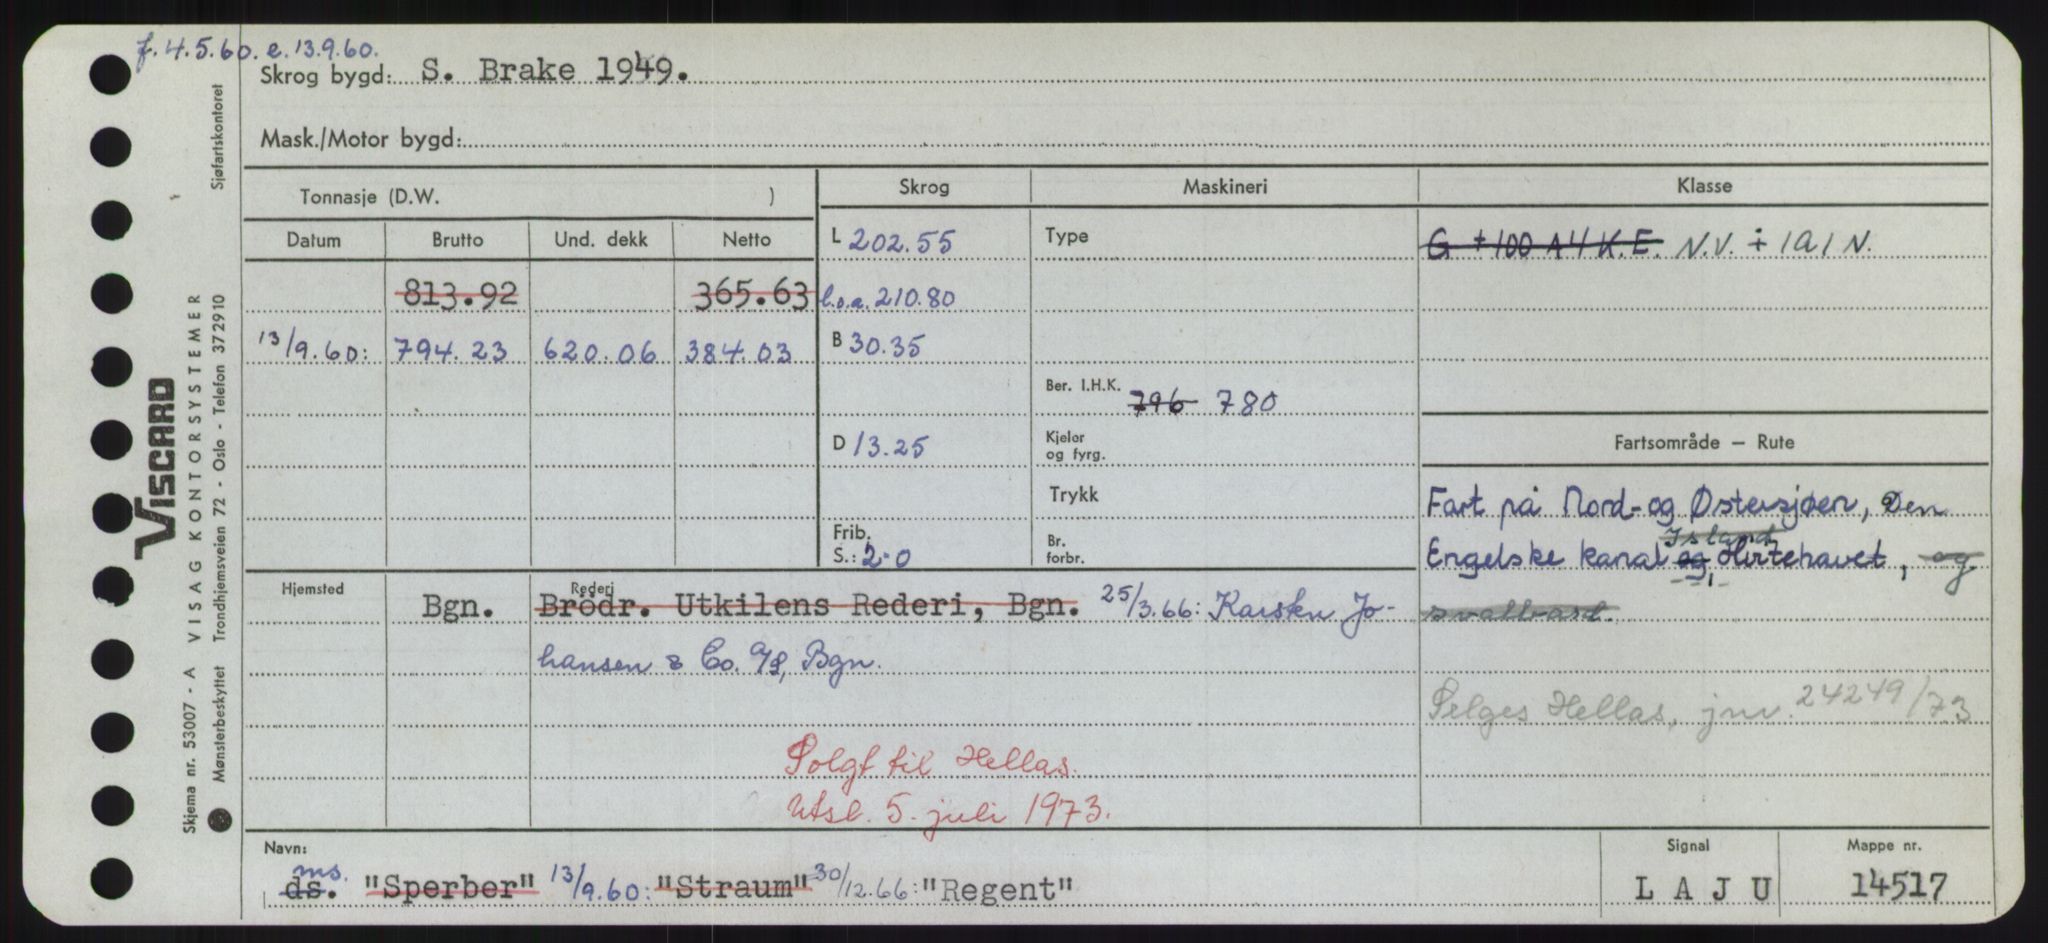 f. 4.5.60. e. 13.9.60.
Skrog bygd: S. Brake 1949.
Mask./Motor bygd:
Tonnasje (D.W. )
Skrog
Maskineri
Klasse
Datum Brutto Und. dekk Netto
L 202.55
Type
G + 100 A4 K.E. N.V. ∔ 1A1 N.
813.92 365.63
l.o.a. 210.80
13/9.60: 794.23 620.06 384.03
B 30.35
Ber. I.H.K. 796 780
D 13.25
Kjeler og fyrg.
Fartsområde — Rute
Trykk
Fart på Nord- og Østersjøen, Den
Island
Frib. S.: 2-0
Br. forbr.
Engelske kanal og, Hvitehavet, og
svalbard.
Hjemsted Bgn.
Rederi
Brödr. Utkilens Rederi, Bgn. 25/3.66: Karsten Jo-
hansen & Co. A/S, Bgn.
Selges Hellas, jnr. 24249/73
Solgt til Hellas.
Utsl. 5. juli 1973.
Navn:
ms.
ds. "Sperber" 13/9.60: "Straum" 30/12.66: "Regent"
Signal
L A J U
Mappe nr.
14517
VISCARD
Skjema nr. 53007 - A VISAG KONTORSYSTEMER
Mønsterbeskyttet Trondhjemsveien 72 - Oslo - Telefon 37 29 10 Sjøfartskontoret